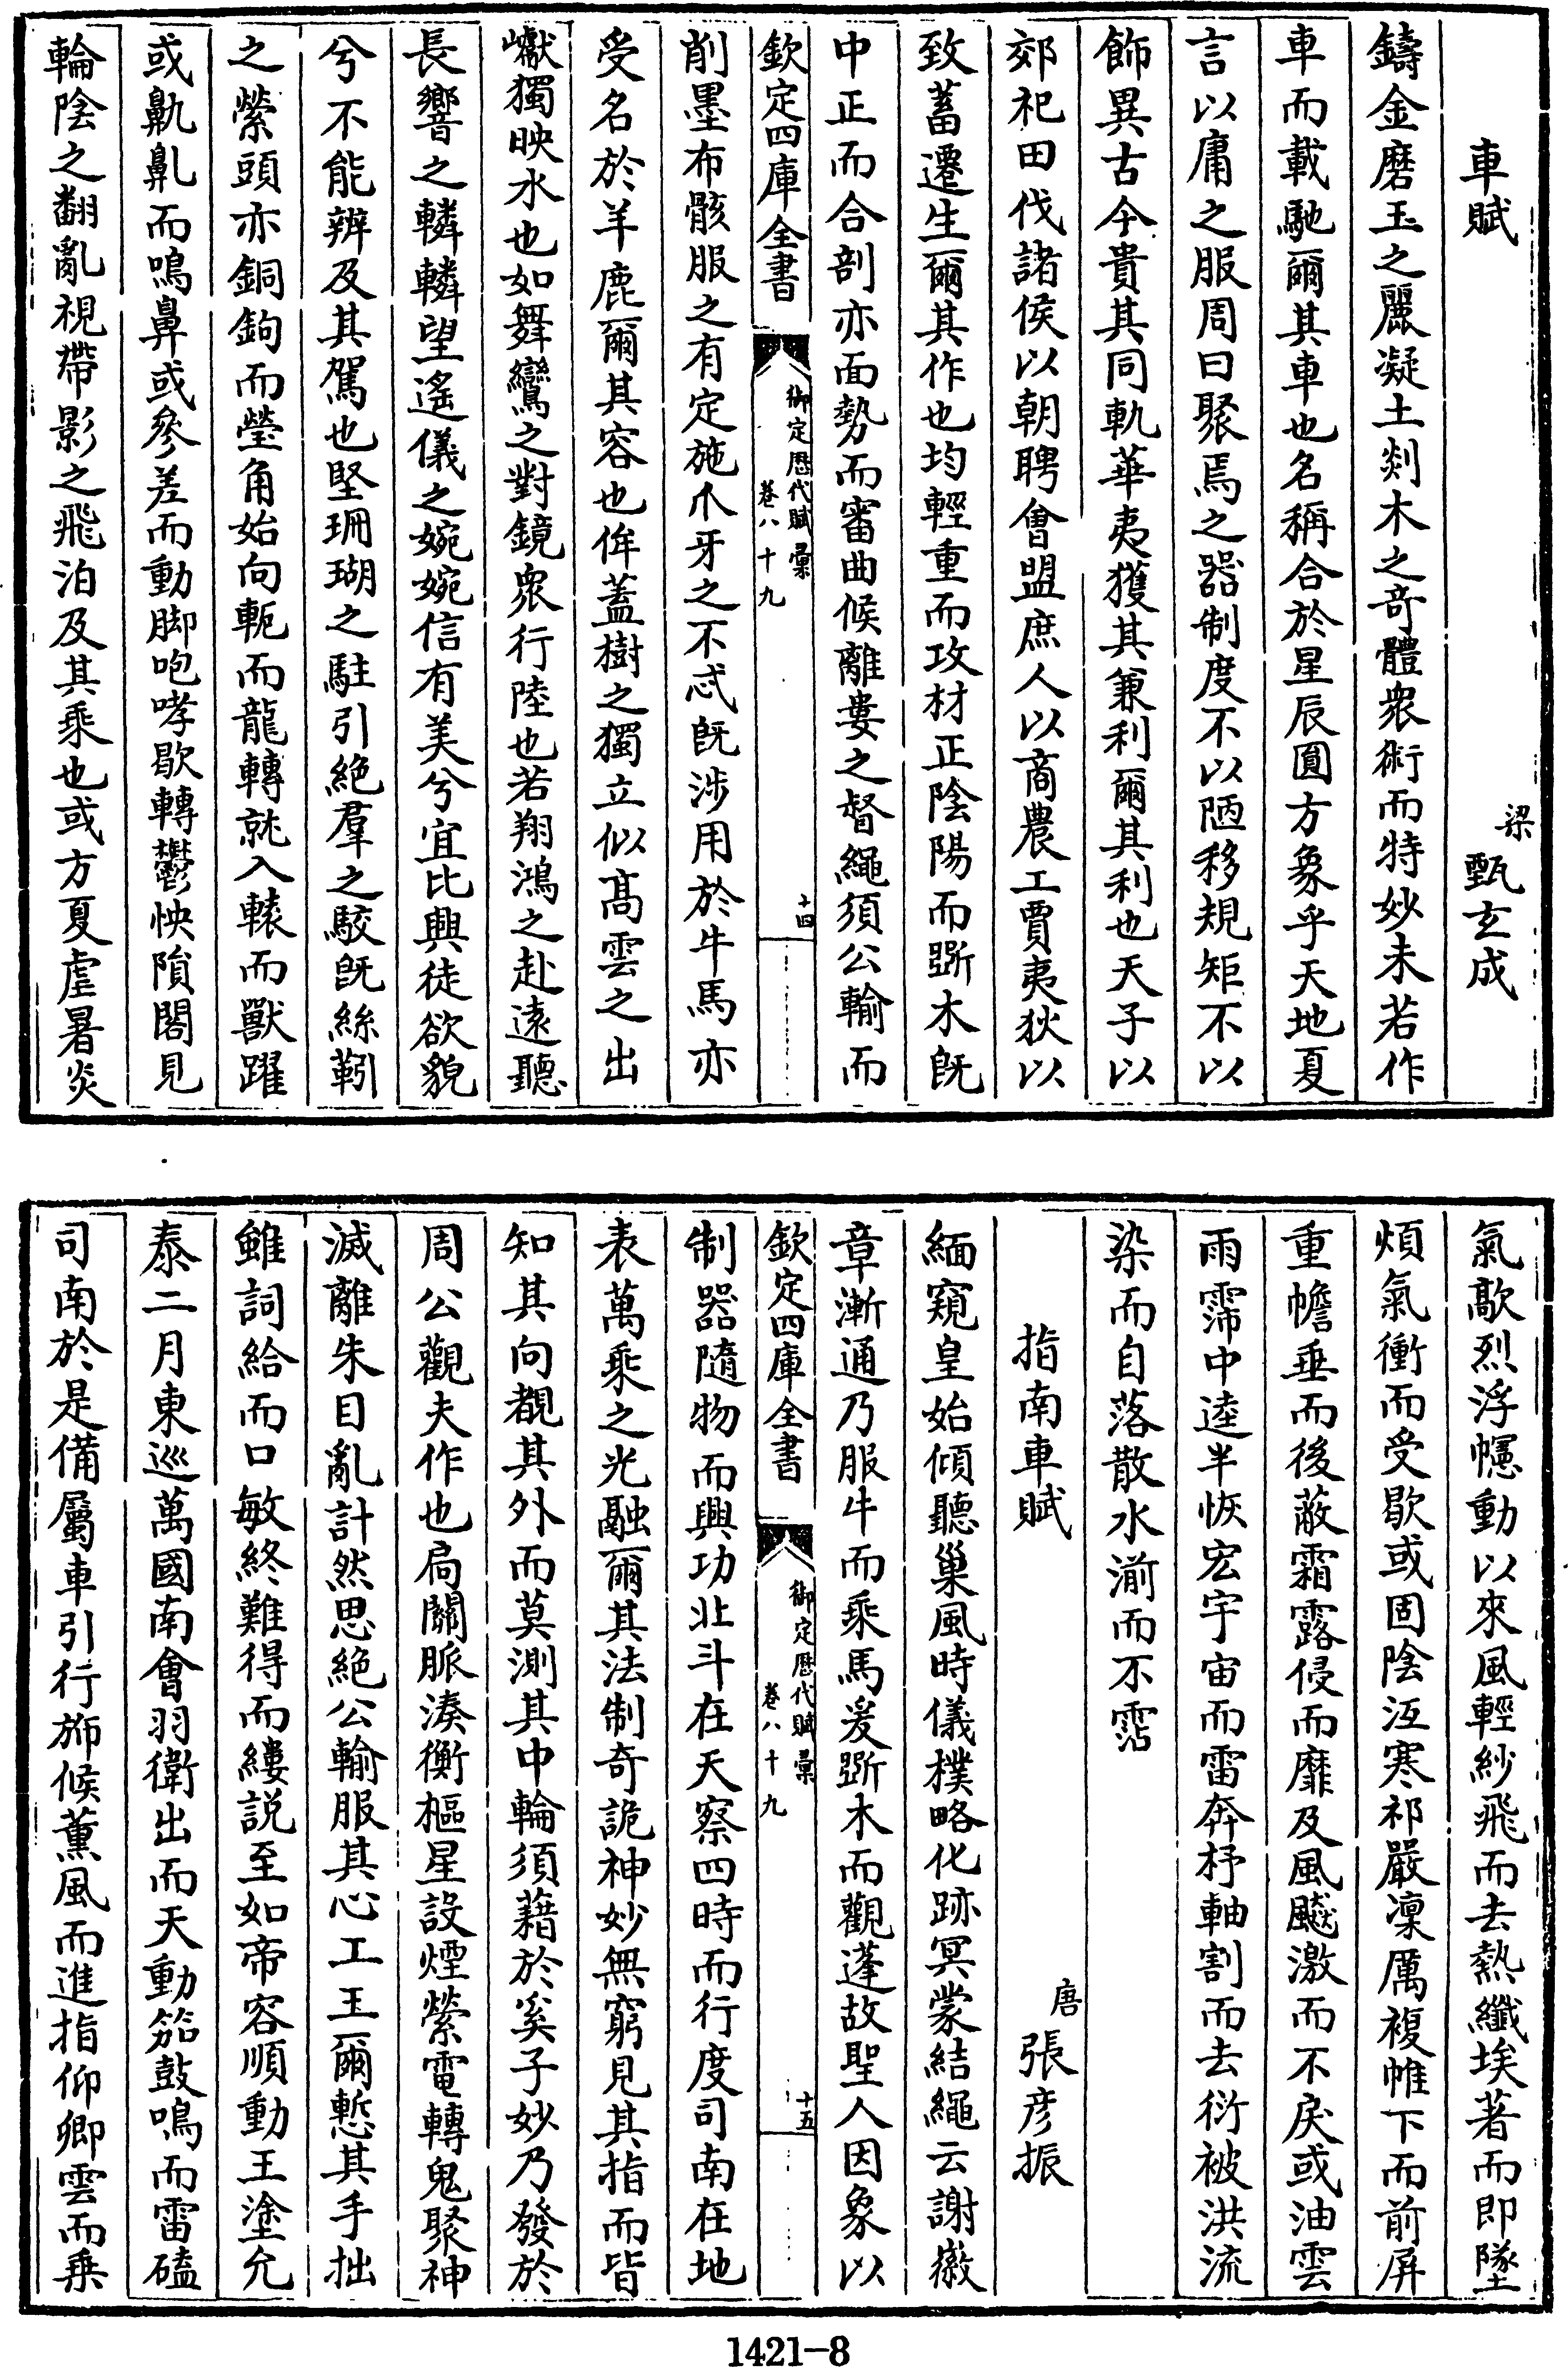 車賦
梁
甄玄成
鑄金磨玉之麗凝土剡木之奇體衆術而特妙未若作
車而載馳爾其車也名稱合於星辰圓方象乎天地夏
言以庸之服周曰聚焉之器制度不以陋移規矩不以
飾異古今貴其同軌華夷獲其兼利爾其利也天子以
郊祀田伐諸侯以朝聘會盟庶人以商農工賈夷狄以
致蓄遷生爾其作也均輕重而攻材正陰陽而斲木既
中正而合剖亦面勢而審曲候離婁之督繩須公輸而
欽定四庫全書
御定歷代賦彙
卷八十九
十四
削墨布骸服之有定施爪牙之不忒既涉用於牛馬亦
受名於羊鹿爾其容也侔蓋樹之獨立似高雲之出
巘獨映水也如舞鸞之對鏡衆行陸也若翔鴻之赴遠聽
長響之轔轔望遙儀之婉婉信有美兮宜比興徒欲貌
兮不能辨及其駕也堅珊瑚之駐引絶羣之駮既絲靷
之縈頭亦銅鉤而瑩角始向軛而龍轉就入轅而獸躍
或鼽鼽而鳴鼻或參差而動脚咆哮歇轉鬱怏隤閣見
輪陰之翻亂視帶影之飛泊及其乘也或方夏虐暑炎
氣歊烈浮幰動以來風輕紗飛而去熱纖埃著而即墜
煩氣衝而受歇或固陰沍寒祁嚴凜厲複帷下而前屏
重幨垂而後蔽霜露侵而靡及風颷激而不戾或油雲
雨霈中逵半恢宏宇宙而雷奔杼軸割而去衍被洪流
染而自落散水湔而不霑
指南車賦
唐
張彦振
緬窺皇始傾聽巢風時儀樸略化跡冥蒙結繩云謝徽
章漸通乃服牛而乘馬爰斲木而觀蓬故聖人因象以
欽定四庫全書
御定歷代賦彙
卷八十九
十五
制器隨物而興功北斗在天察四時而行度司南在地
表萬乘之光融爾其法制奇詭神妙無窮見其指而皆
知其向覩其外而莫測其中輪須藉於奚子妙乃發於
周公觀夫作也局關脈湊衡樞星設煙縈電轉鬼聚神
滅離朱目亂計然思絶公輸服其心工王爾慙其手拙
雖詞給而口敏終難得而縷説至如帝容順動王塗允
泰二月東巡萬國南會羽衛出而天動笳鼓鳴而雷磕
司南於是備屬車引行斾候薰風而進指仰卿雲而乗
1421-8